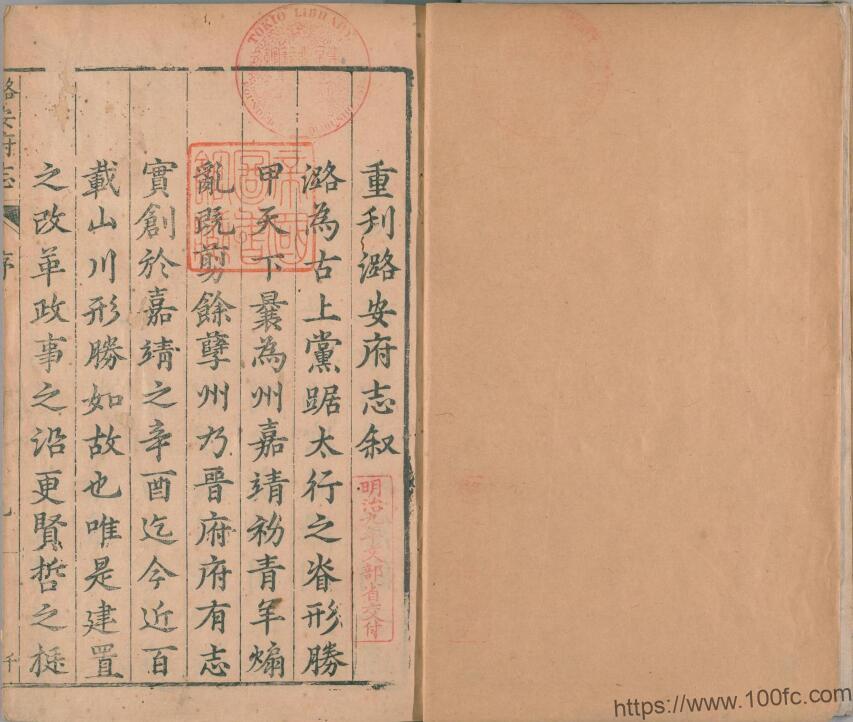 重刋潞安府志叙
明治九年文部省交付
潞為古上黨踞太行之脊形勝
甲天下曩為州嘉靖初青羊煽
亂既剪餘孽州乃晉府府有志
實創於嘉靖之辛酉迄今近百
載山川形勝如故也唯是建置
之改革政事之沿更賢哲之挺
潞安府志 序
TOKIO LIBRARY
https://www.100fc.com